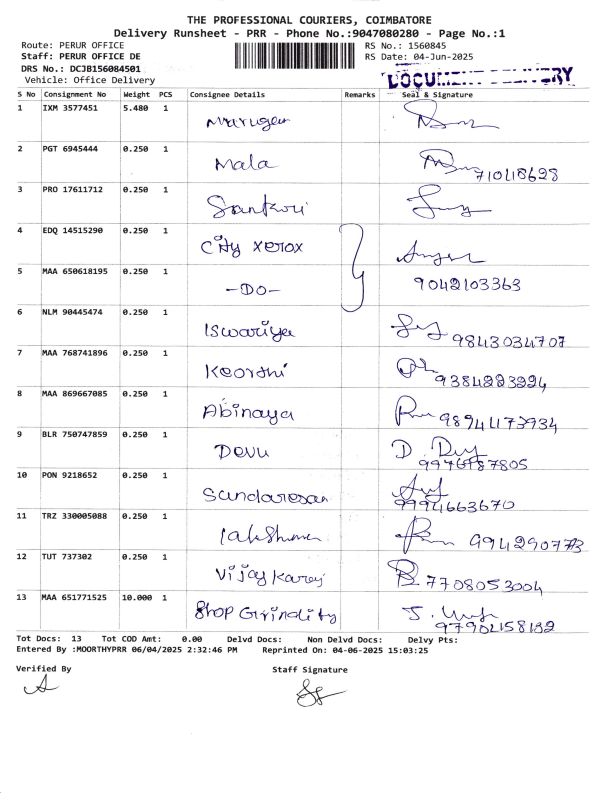 THE PROFESSIONAL COURIERS, COIMBATORE
Delivery Runsheet - PRR - Phone No.:9047080280 - Page No.:1
Route: PERUR OFFICE RS No.: 1560845
Staff: PERUR OFFICE DE RS Date: 04-Jun-2025
DRS No.: DCJB156084501
Vehicle: Office Delivery
S No Consignment No Weight PCS Consignee Details Remarks Seal & Signature
1 IXM 3577451 5.480 1 Murugan
2 PGT 6945444 0.250 1 Mala
3 PRO 17611712 0.250 1
4 EDQ 14515290 0.250 1 City xerox
5 MAA 650618195 0.250 1 -DO- 9042103363
6 NLM 90445474 0.250 1 Iswariya 9843034707
7 MAA 768741896 0.250 1
8 MAA 869667085 0.250 1 Abinaya
9 BLR 750747859 0.250 1 Devu
10 PON 9218652 0.250 1 Sundaresan 9994663670
11 TRZ 330005088 0.250 1
12 TUT 737302 0.250 1 7708053004
13 MAA 651771525 10.000 1 Shop
Tot Docs: 13 Tot COD Amt: 0.00 Delvd Docs: Non Delvd Docs: Delvy Pts:
Entered By :MOORTHYPRR 06/04/2025 2:32:46 PM Reprinted On: 04-06-2025 15:03:25
Verified By Staff Signature